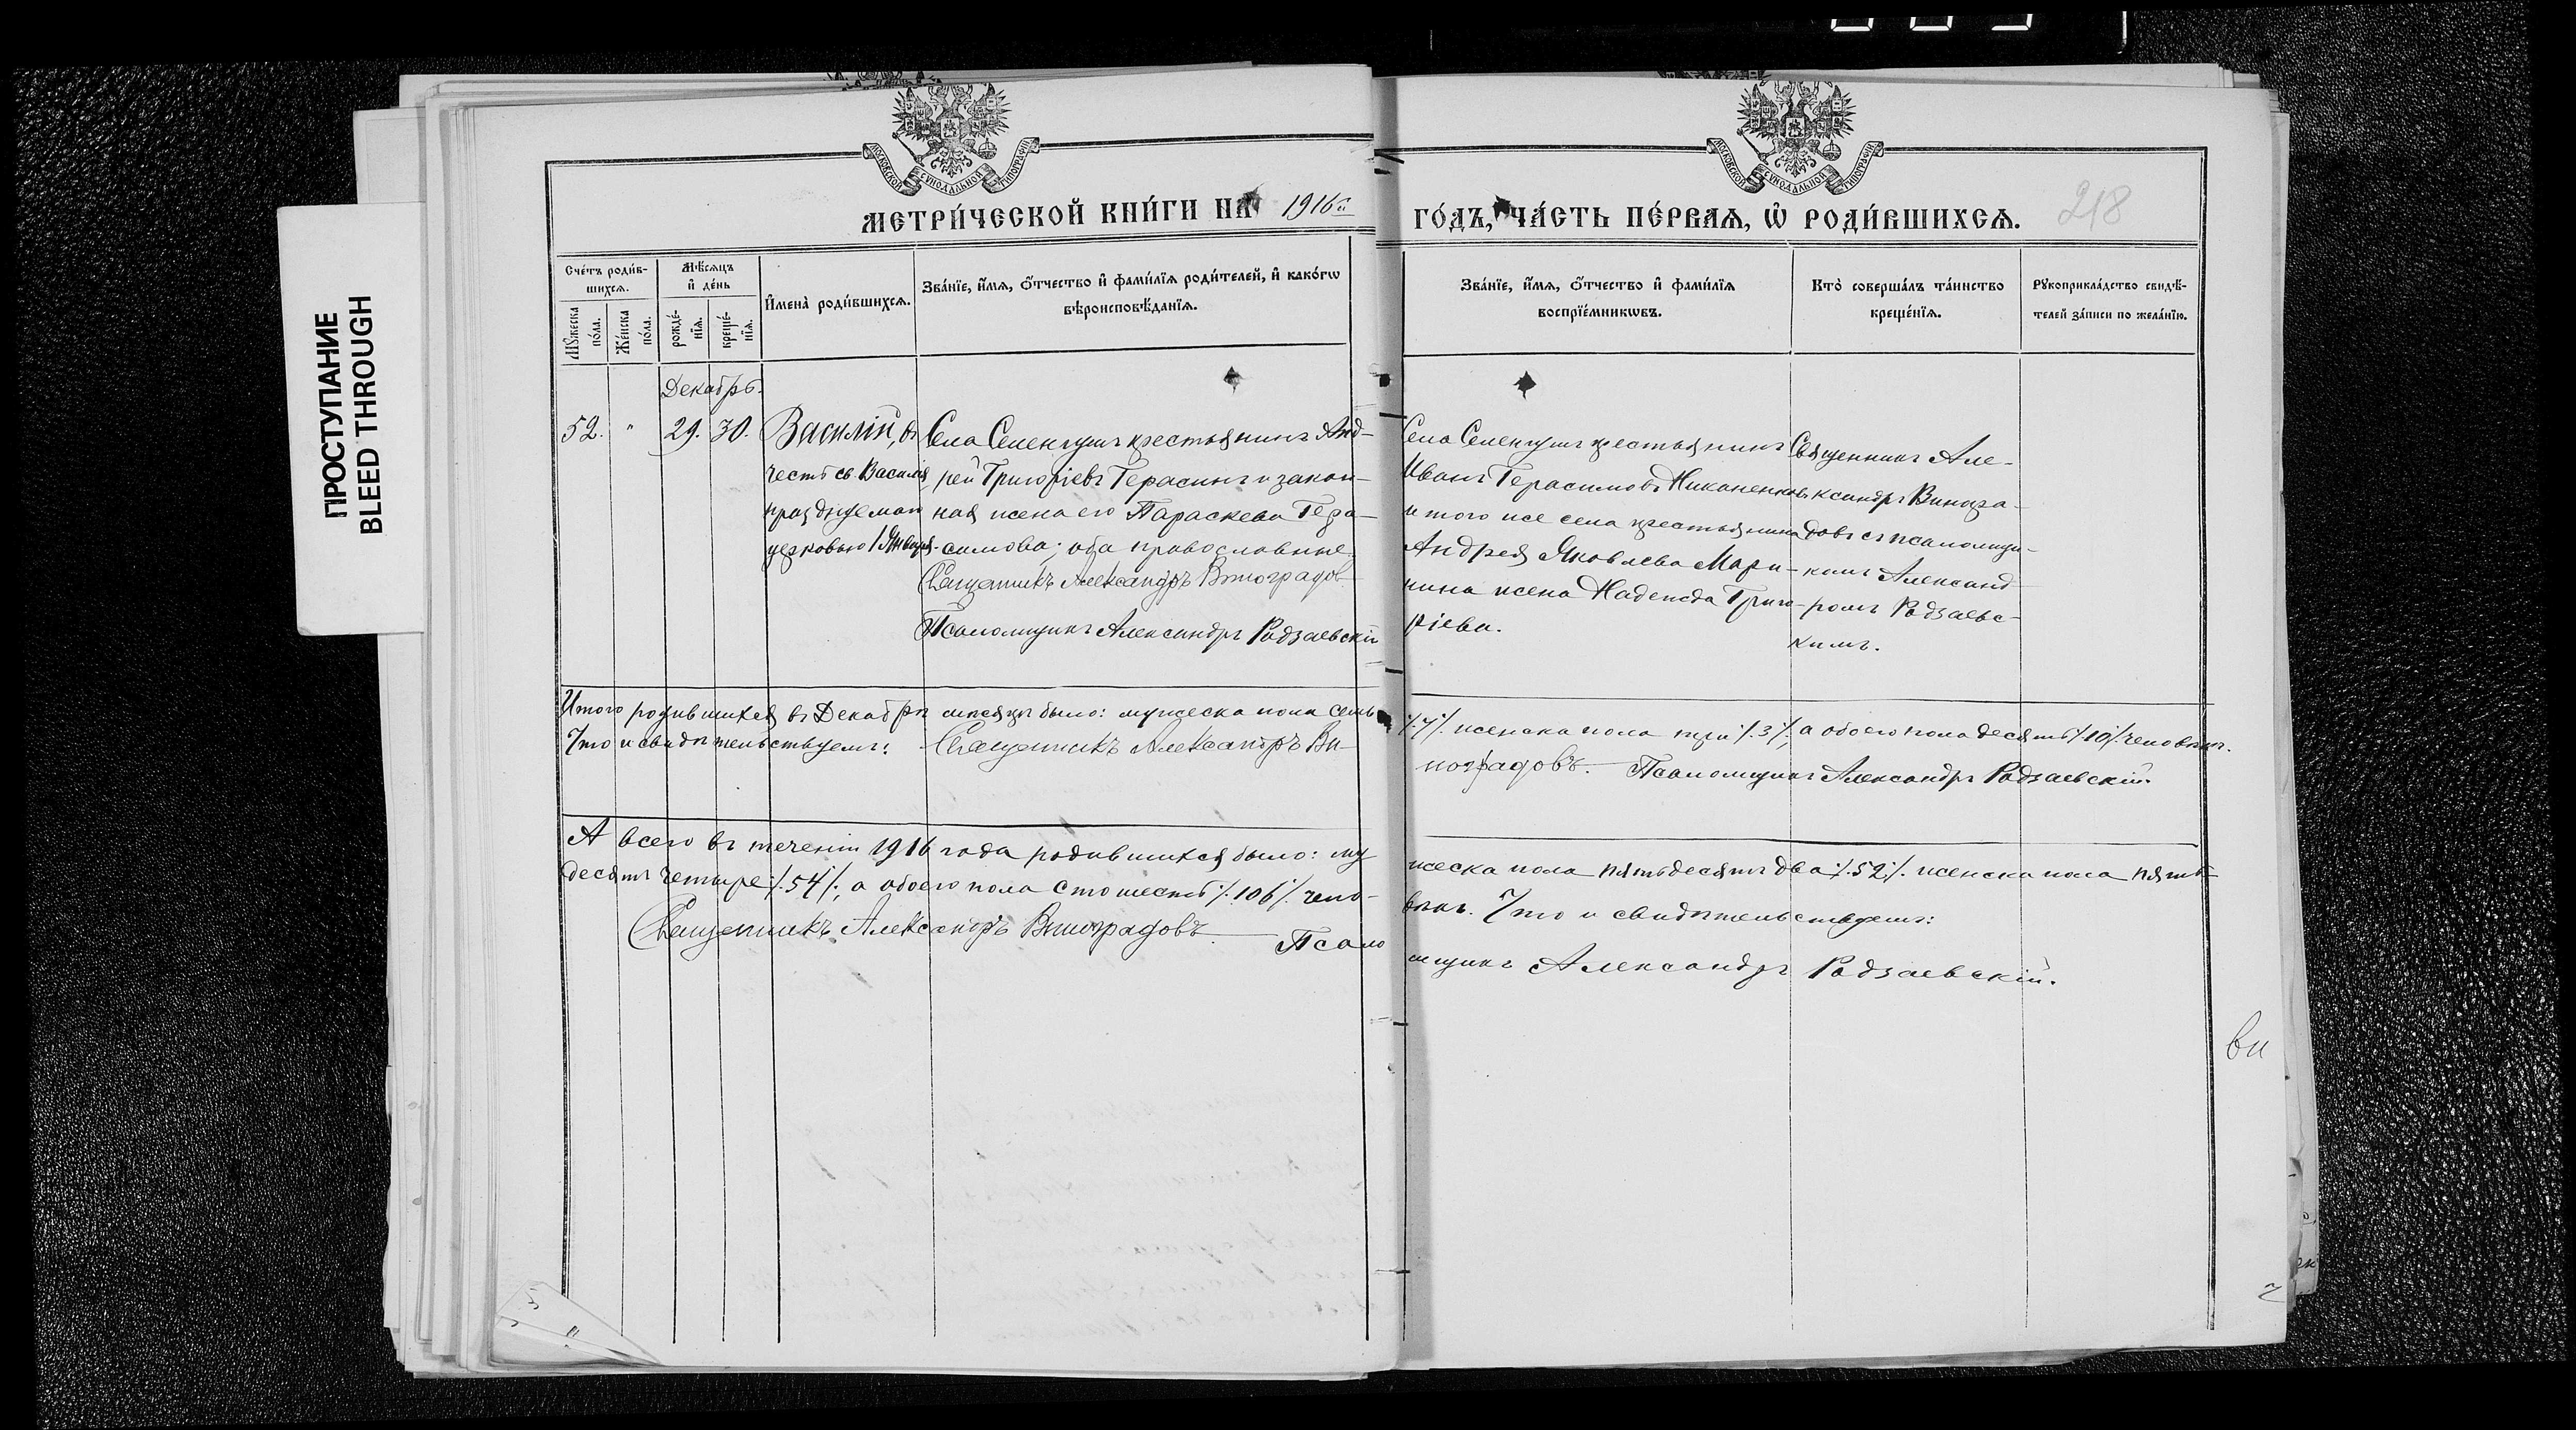 ПРОСТУПАНИЕ
BLEED THROUGH
МОСКОВСКОЙ СУНОДАЛЬНОЙ ТИПОГРАФІИ
МОСКОВСКОЙ СУНОДАЛЬНОЙ ТИПОГРАФІИ
МЕТРИ́ЧЕСКОЙ КНИ́ГИ НА 1916й ГО́ДЪ, ЧА́СТЬ ПЕ́РВАЯ, Ѡ҆ РОДИ́ВШИХСѦ.
218
Сче́тъ роди́в-
шихсѧ.
Мꙋ́жеска по́ла.
Же́нска по́ла.
Мѣ́сѧцъ
и҆ де́нь
рожде́-
нїѧ.
креще́-
нїѧ.
И҆мена̀ роди́вшихсѧ.
Зва́нїе, и҆́мѧ, ѻ҆́тчество и҆ фами́лїѧ роди́телей, и҆ како́гѡ
вѣроисповѣ́данїѧ.
Зва́нїе, и҆́мѧ, ѻ҆́тчество и҆ фами́лїѧ
воспрїе́мникѡвъ.
Кто̀ соверша́лъ та́инство
креще́нїѧ.
Рꙋкоприкла́дство свидѣ́-
телей за́писи по жела́нїю.
Декабрь.
52.
"
29.
30.
Василій, въ
честь св. Василія,
празднуемаго
церковью 1 Января.
Села Селенгушъ крестьянинъ Анд-
рей Григоріевъ Герасинъ и закон-
ная жена его Параскева Гера-
симова; оба православные.
Священникъ Александръ Виноградовъ
Псаломщикъ Александръ Радзаевскій
Села Селенгушъ крестьянинъ
Иванъ Герасимовъ
и того же села крестьянина
Андрея Яковлева Мари-
нина жена Надежда Григо-
ріева.
Священникъ Але-
ксандръ Виногра-
довъ съ псаломщи-
комъ Александ-
ромъ Радзаевс-
кимъ.
Итого родившихся въ Декабрѣ мѣсяцѣ было: мужеска пола семь /.7/. женска пола три /.3/., а обоего пола десять /.10/. человѣкъ.
Что и свидѣтельствуемъ: Священникъ Александръ Ви-
ноградовъ. Псаломщикъ Александръ Радзаевскій.
А всего въ теченіи 1916 года родившихся было: му
жеска пола пятьдесятъ два /.52/. женска пола пять-
десятъ четыре /.54/.; а обоего пола сто шесть /.106/. чело-
вѣкъ. Что и свидѣтельствуемъ:
Священникъ Александръ Виноградовъ. Псало
мщикъ Александръ Радзаевскій.